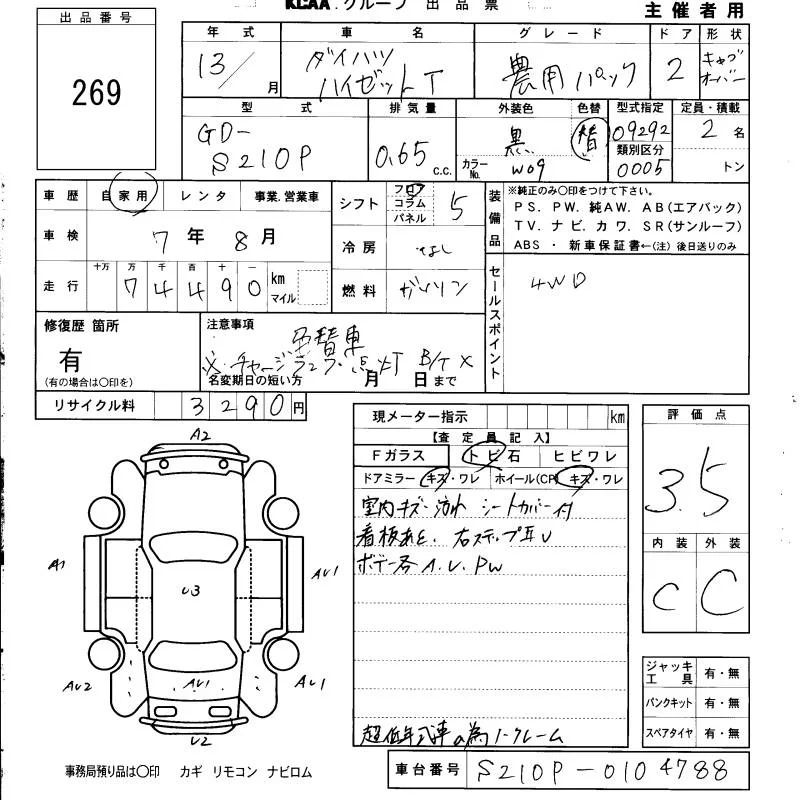 KCAA.グループ 出品票
主催者用
出品番号
269
年式 車名 グレード ドア 形状
13/ 月 ダイハツ ハイゼットT 農用パック 2 キャブオーバー
型式 排気量 外装色 色替 型式指定 定員・積載
GD-
S210P 0.65 c.c. 黒 替 09292 2 名
カラーNo. W09 類別区分 0005 トン
車歴 自家用 レンタ 事業.営業車
車検 7年 8月
走行 十万 万 千 百 十 一 km マイル
7 4 4 9 0
シフト フロア コラム パネル 5
冷房 なし
燃料 ガソリン
装備品
※純正のみ〇印をつけて下さい。
PS. PW. 純AW. AB(エアバック)
TV. ナビ. カワ. SR(サンルーフ)
ABS ・ 新車保証書←(注)後日送りのみ
セールスポイント
4WD
修復歴 箇所
有
(有の場合は〇印を)
注意事項
色替車
※.チャージランプ点灯 B/T ×
名変期日の短い方 月 日まで
リサイクル料 3290円
現メーター指示 km
【査定員記入】
Fガラス トビ石 ヒビワレ
ドアミラー キズ・ワレ ホイール(CP) キズ・ワレ
室内キズ・汚れ シートカバー付
看板あと、右ステップ耳U
ボデー各A.U.PW
超低年式車の為ノークレーム
評価点
3.5
内装 外装
C C
ジャッキ工具 有・無
パンクキット 有・無
スペアタイヤ 有・無
A2
A1
U3
AU1
AU2
AU1
AU1
U2
事務局預り品は〇印 カギ リモコン ナビロム
車台番号 S210P-0104788